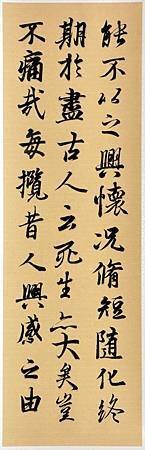 能不以之興懷况脩短隨化終
期於盡古人云死生亦大矣豈
不痛哉每攬昔人興感之由